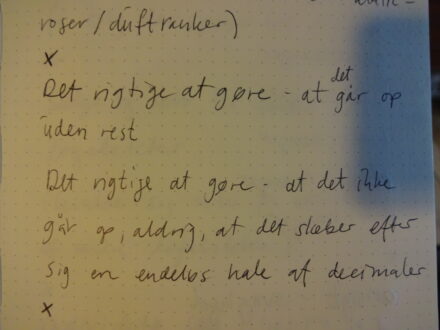 roser/duftranker)
x
Det rigtige at gøre - at det går op
uden rest
Det rigtige at gøre - at det ikke
går op, aldrig, at det slæber efter
sig en endeløs hale af decimaler
x